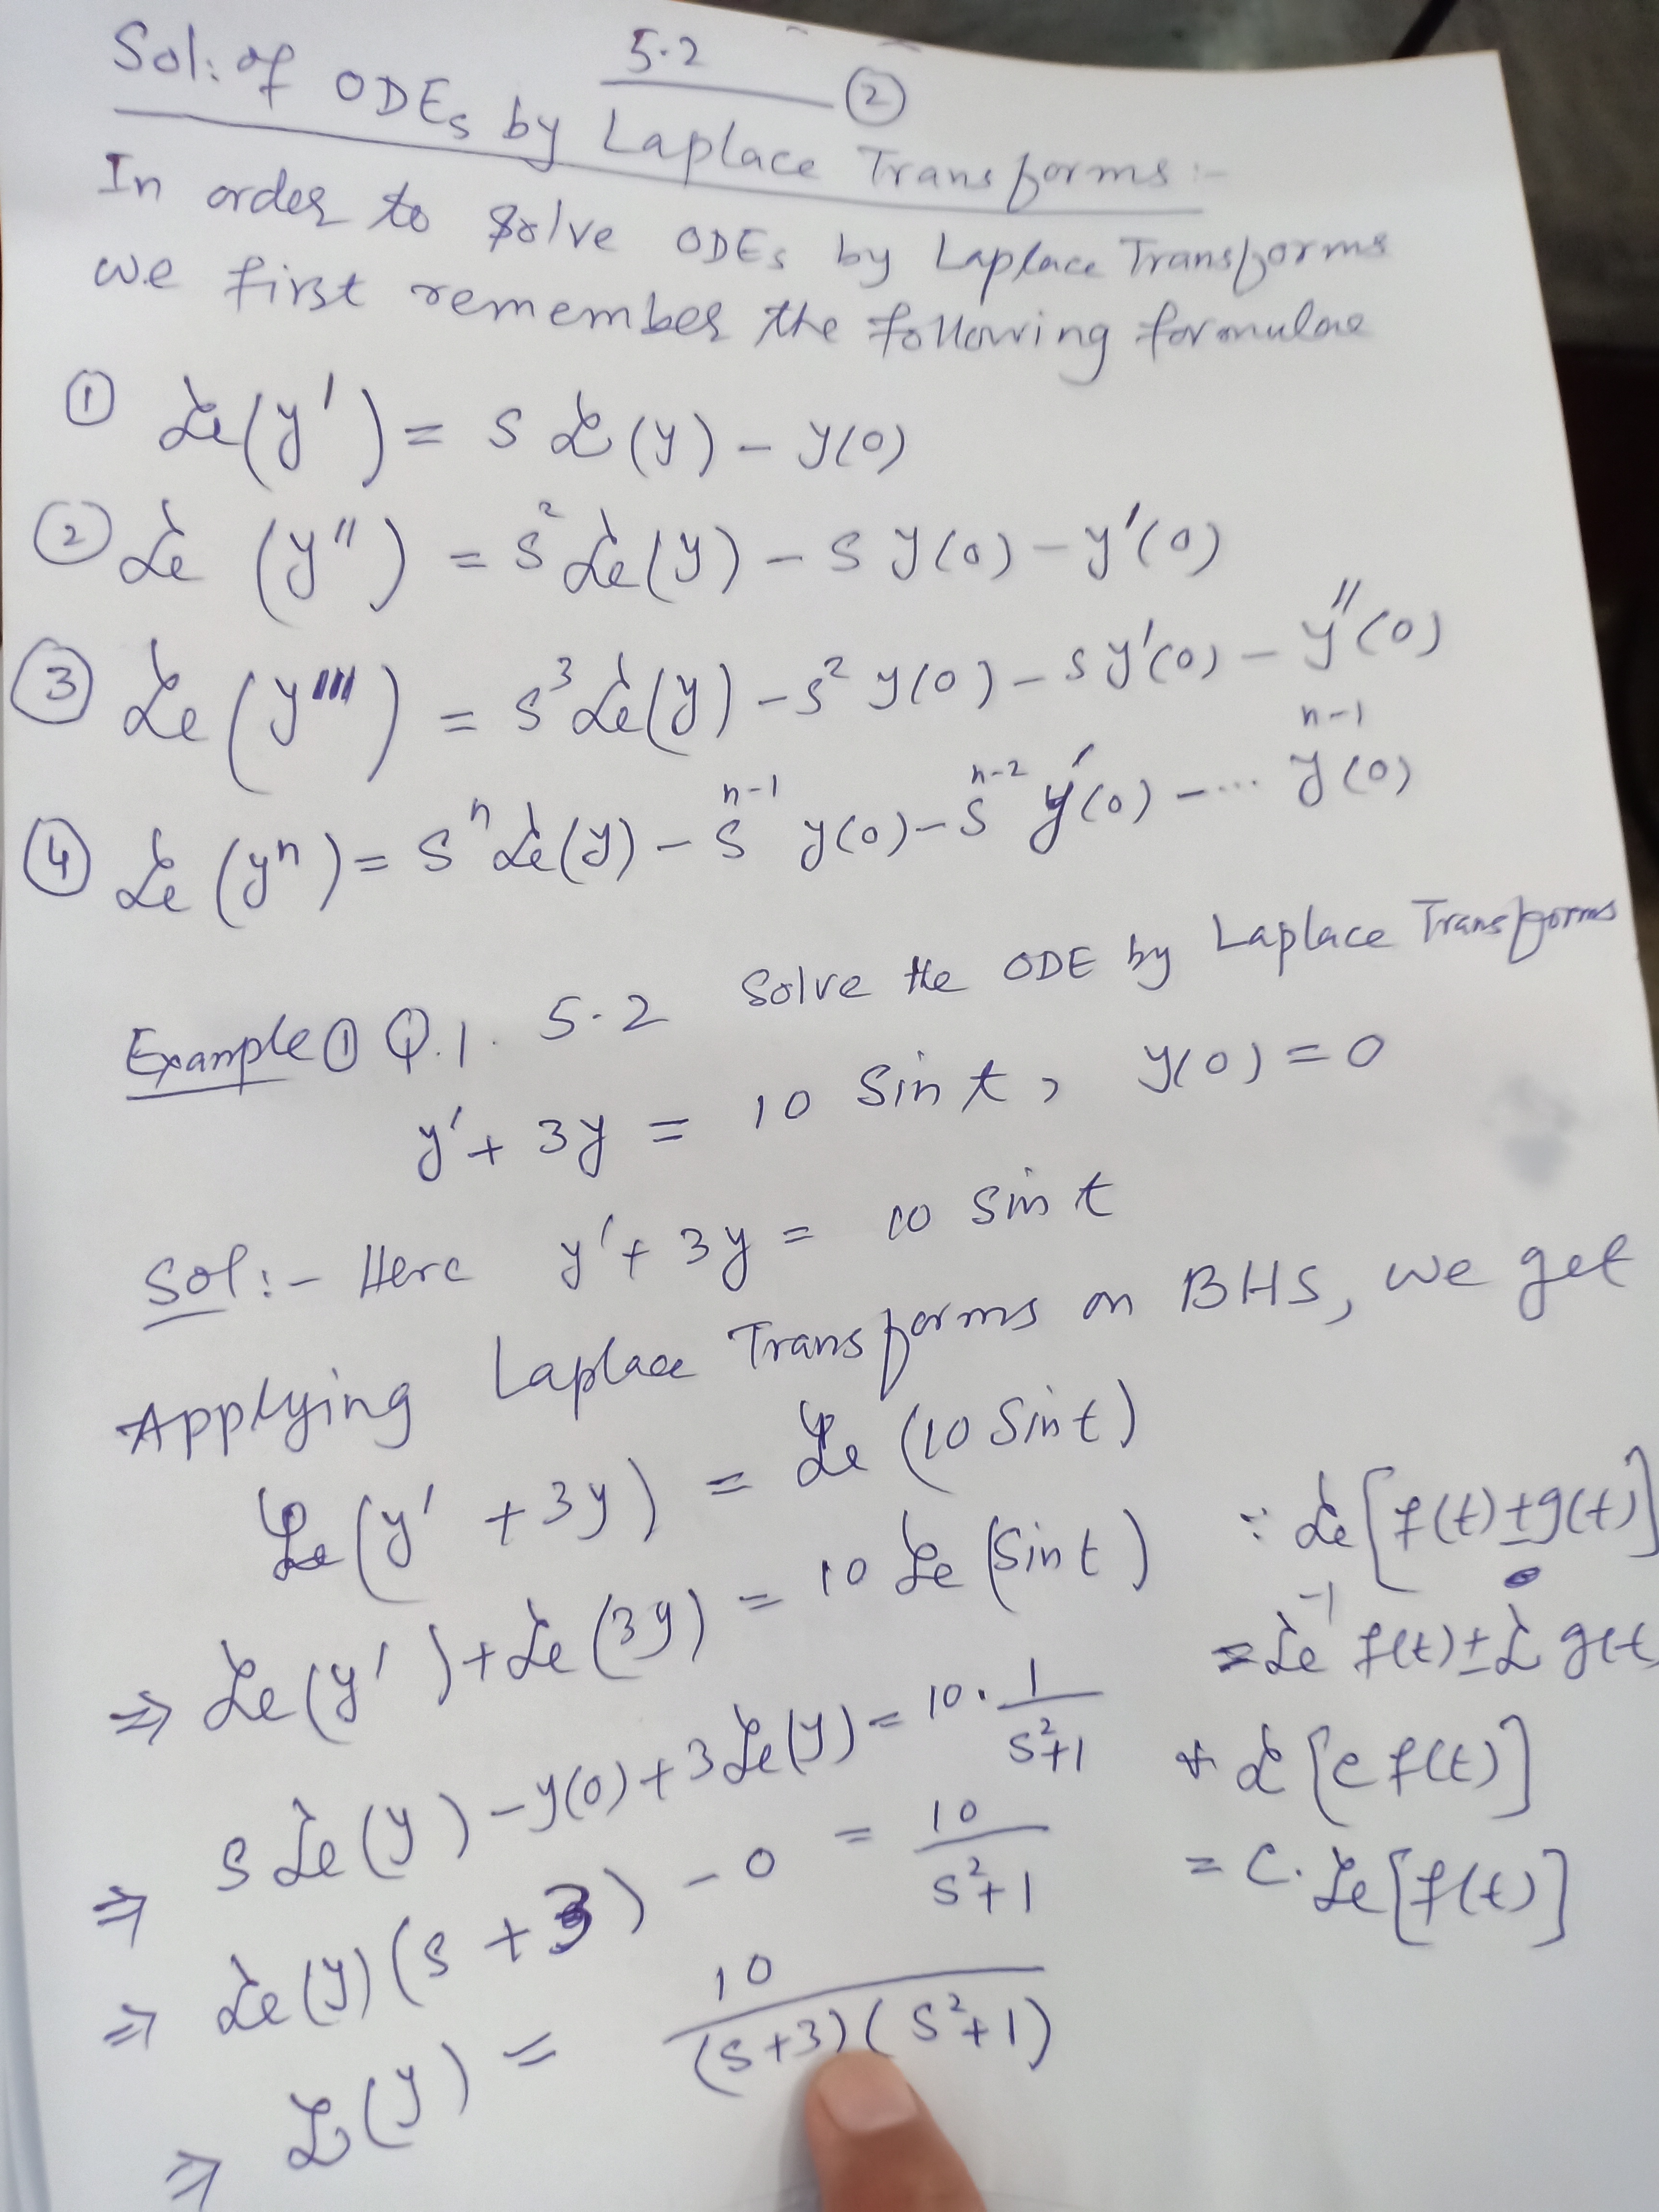 5.2 ②
Sol: of ODEs by Laplace Transforms :-
In order to solve ODEs by Laplace Transforms
we first remember the following formulae
① ℒ(y') = s ℒ(y) - y(0)
② ℒ(y'') = s² ℒ(y) - s y(0) - y'(0)
③ ℒ(y''') = s³ ℒ(y) - s² y(0) - s y'(0) - y''(0)
④ ℒ(yⁿ) = sⁿ ℒ(y) - sⁿ⁻¹ y(0) - sⁿ⁻² y'(0) - ... yⁿ⁻¹(0)
Example ① Q.1. 5.2 Solve the ODE by Laplace Transforms
y' + 3y = 10 Sin t, y(0) = 0
Sol:- Here y' + 3y = 10 Sin t
Applying Laplace Transforms on BHS, we get
ℒ(y' + 3y) = ℒ(10 Sin t)
⇒ ℒ(y') + ℒ(3y) = 10 ℒ(Sin t) ∵ ℒ[f(t) ± g(t)]
= ℒ⁻¹ f(t) ± ℒ g(t
⇒ s ℒ(y) - y(0) + 3 ℒ(y) = 10 · 1/(s²+1) & ℒ[c f(t)]
⇒ ℒ(y)(s + 3) - 0 = 10/(s²+1) = c. ℒ[f(t)]
⇒ ℒ(y) = 10/((s+3)(s²+1))